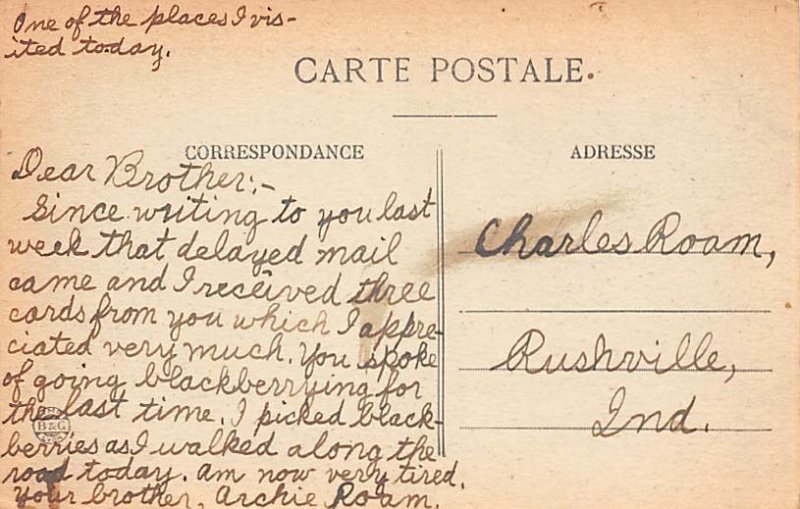 One of the places I vis-
ited today.
CARTE POSTALE.
CORRESPONDANCE
ADRESSE
Dear Brother:-
Since writing to you last
week that delayed mail
came and I received three
cards from you which I appre-
ciated very much. You spoke
of going blackberrying for
the last time. I picked black-
berries as I walked along the
road today. Am now very tired.
Your brother, Archie Roam.
B&G
Charles Roam,
Rushville,
Ind.